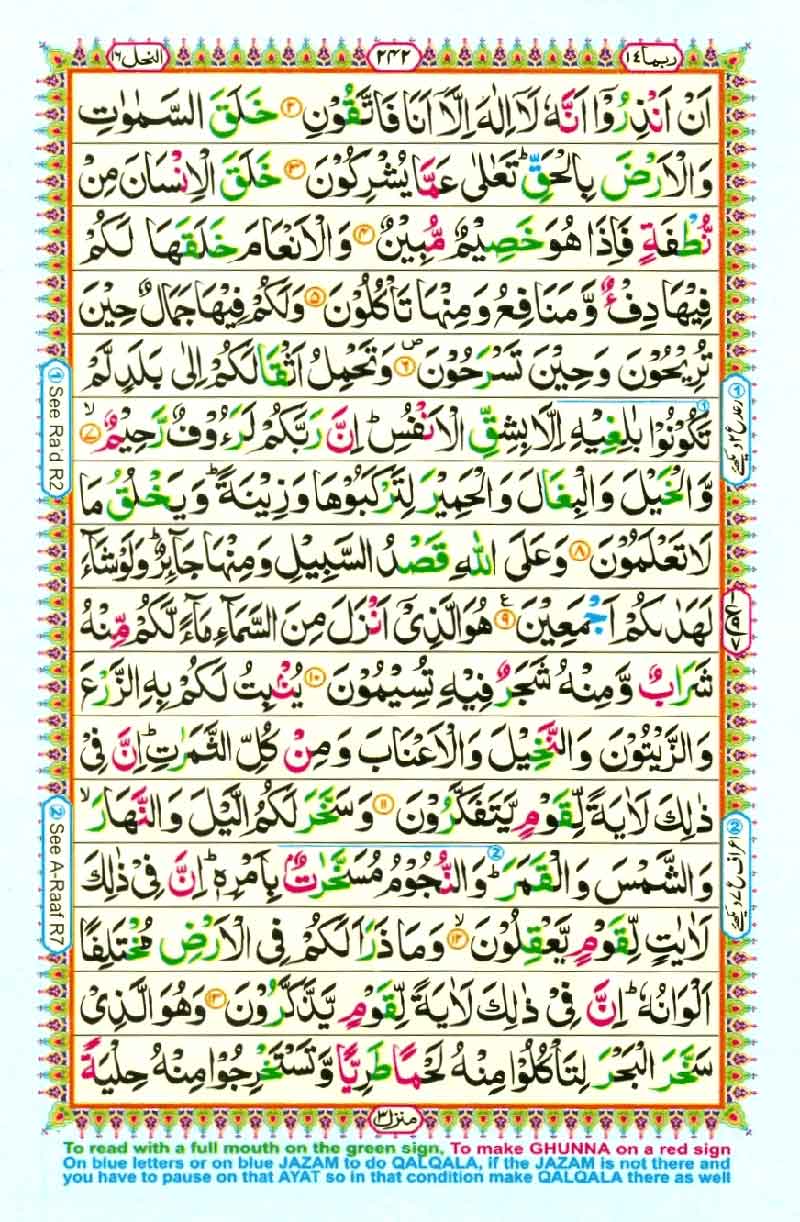 ربما ١٤
٢٤٢
النحل ١٦
اَنْ اَنْذِرُوْۤا اَنَّهٗ لَاۤ اِلٰهَ اِلَّاۤ اَنَا فَاتَّقُوْنِ ۝۲ خَلَقَ السَّمٰوٰتِ
وَالْاَرْضَ بِالْحَقِّ ؕ تَعٰلٰى عَمَّا يُشْرِكُوْنَ ۝۳ خَلَقَ الْاِنْسَانَ مِنْ
نُّطْفَةٍ فَاِذَا هُوَ خَصِيْمٌ مُّبِيْنٌ ۝۴ وَالْاَنْعَامَ خَلَقَهَا ۚ لَكُمْ
فِيْهَا دِفْءٌ وَّمَنَافِعُ وَمِنْهَا تَاْكُلُوْنَ ۝۵ وَلَكُمْ فِيْهَا جَمَالٌ حِيْنَ
تُرِيْحُوْنَ وَحِيْنَ تَسْرَحُوْنَ ۝۶ وَتَحْمِلُ اَثْقَالَكُمْ اِلٰى بَلَدٍ لَّمْ
تَكُوْنُوْا بٰلِغِيْهِ اِلَّا بِشِقِّ الْاَنْفُسِ ؕ اِنَّ رَبَّكُمْ لَرَءُوْفٌ رَّحِيْمٌ ۝۷
وَّالْخَيْلَ وَالْبِغَالَ وَالْحَمِيْرَ لِتَرْكَبُوْهَا وَزِيْنَةً ؕ وَيَخْلُقُ مَا
لَا تَعْلَمُوْنَ ۝۸ وَعَلَى اللّٰهِ قَصْدُ السَّبِيْلِ وَمِنْهَا جَآئِرٌ ؕ وَلَوْ شَآءَ
لَهَدٰىكُمْ اَجْمَعِيْنَ ۝۹ هُوَ الَّذِىْۤ اَنْزَلَ مِنَ السَّمَآءِ مَآءً لَّكُمْ مِّنْهُ
شَرَابٌ وَّمِنْهُ شَجَرٌ فِيْهِ تُسِيْمُوْنَ ۝۱۰ يُنْۢبِتُ لَكُمْ بِهِ الزَّرْعَ
وَالزَّيْتُوْنَ وَالنَّخِيْلَ وَالْاَعْنَابَ وَمِنْ كُلِّ الثَّمَرٰتِ ؕ اِنَّ فِىْ
ذٰلِكَ لَاٰيَةً لِّقَوْمٍ يَّتَفَكَّرُوْنَ ۝۱۱ وَسَخَّرَ لَكُمُ الَّيْلَ وَالنَّهَارَ ۙ
وَالشَّمْسَ وَالْقَمَرَ ؕ وَالنُّجُوْمُ مُسَخَّرٰتٌۢ بِاَمْرِهٖ ؕ اِنَّ فِىْ ذٰلِكَ
لَاٰيٰتٍ لِّقَوْمٍ يَّعْقِلُوْنَ ۝۱۲ وَمَا ذَرَاَ لَكُمْ فِى الْاَرْضِ مُخْتَلِفًا
اَلْوَانُهٗ ؕ اِنَّ فِىْ ذٰلِكَ لَاٰيَةً لِّقَوْمٍ يَّذَّكَّرُوْنَ ۝۱۳ وَهُوَ الَّذِىْ
سَخَّرَ الْبَحْرَ لِتَاْكُلُوْا مِنْهُ لَحْمًا طَرِيًّا وَّتَسْتَخْرِجُوْا مِنْهُ حِلْيَةً
① See Ra'd R2
② See A-Raaf R7
منزل ٣
To read with a full mouth on the green sign, To make GHUNNA on a red sign
On blue letters or on blue JAZAM to do QALQALA, if the JAZAM is not there and
you have to pause on that AYAT so in that condition make QALQALA there as well